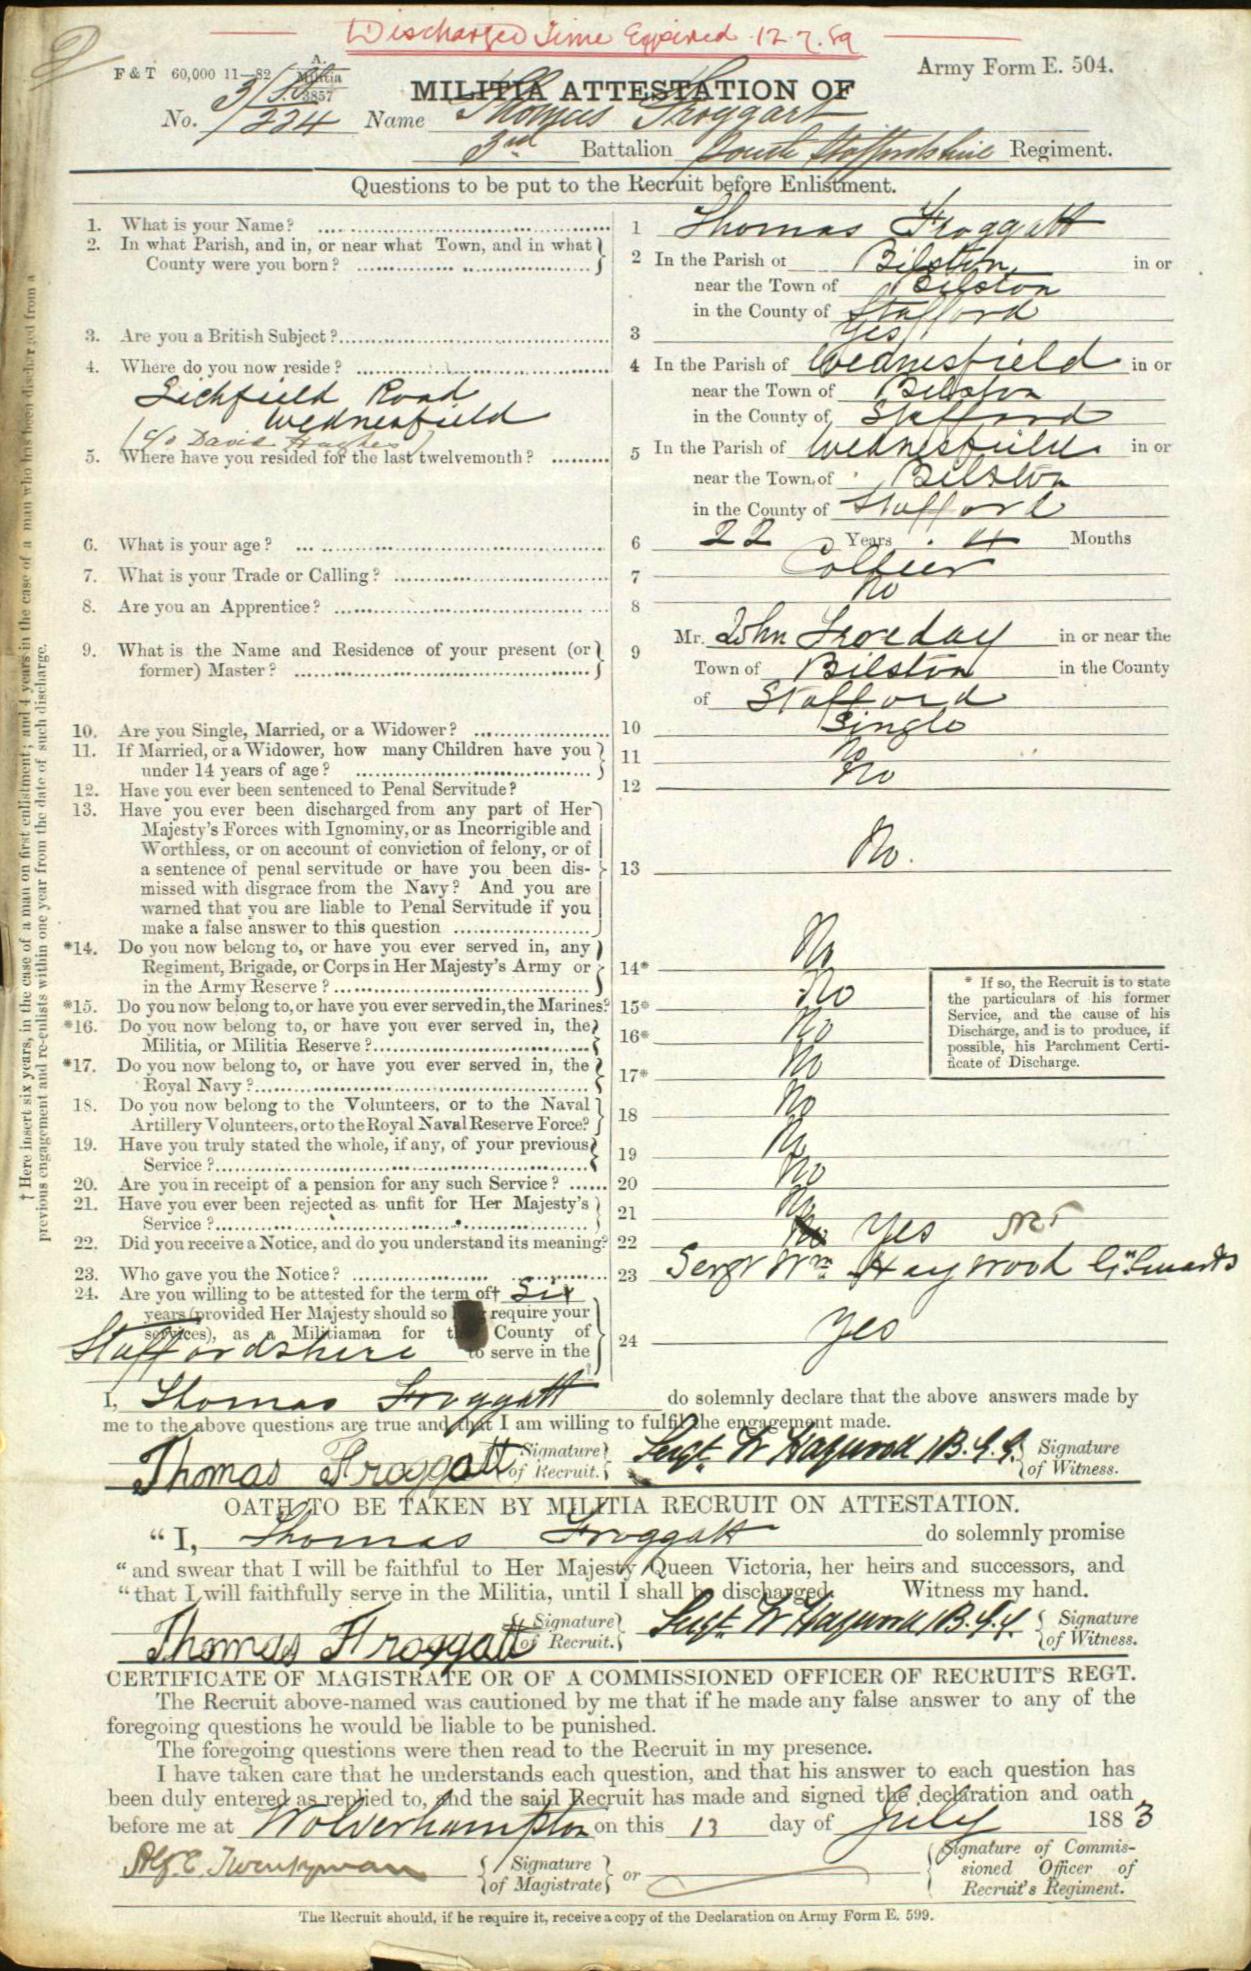 Discharged Time Expired 12.7.89
F & T 60,000 11—82 A. Militia 3857
Army Form E. 504.
MILITIA ATTESTATION OF
No. 3/ 224 Name Thomas Froggart
3rd Battalion South Staffordshire Regiment.
Questions to be put to the Recruit before Enlistment.
1. What is your Name? 1 Thomas Froggatt
2. In what Parish, and in, or near what Town, and in what
County were you born? 2 In the Parish of Bilston in or
near the Town of Bilston
in the County of Stafford
3. Are you a British Subject? 3 Yes
4. Where do you now reside? 4 In the Parish of Wednesfield in or
Lichfield Road near the Town of Bilston
Wednesfield in the County of Stafford
(c/o David Hughes)
5. Where have you resided for the last twelvemonth? 5 In the Parish of Wednesfield in or
near the Town of Bilston
in the County of Stafford
6. What is your age? 6 22 Years 4 Months
7. What is your Trade or Calling? 7 Collier
8. Are you an Apprentice? 8 No
9. What is the Name and Residence of your present (or
former) Master? 9 Mr. John in or near the
Town of Bilston in the County
of Stafford
10. Are you Single, Married, or a Widower? 10 Single
11. If Married, or a Widower, how many Children have you
under 14 years of age? 11 No
12. Have you ever been sentenced to Penal Servitude? 12 No
13. Have you ever been discharged from any part of Her
Majesty's Forces with Ignominy, or as Incorrigible and
Worthless, or on account of conviction of felony, or of
a sentence of penal servitude or have you been dis-
missed with disgrace from the Navy? And you are
warned that you are liable to Penal Servitude if you
make a false answer to this question 13 No.
*14. Do you now belong to, or have you ever served in, any
Regiment, Brigade, or Corps in Her Majesty's Army or
in the Army Reserve? 14* No
*15. Do you now belong to, or have you ever served in, the Marines? 15* No
*16. Do you now belong to, or have you ever served in, the
Militia, or Militia Reserve? 16* No
*17. Do you now belong to, or have you ever served in, the
Royal Navy? 17* No
* If so, the Recruit is to state
the particulars of his former
Service, and the cause of his
Discharge, and is to produce, if
possible, his Parchment Certi-
ficate of Discharge.
18. Do you now belong to the Volunteers, or to the Naval
Artillery Volunteers, or to the Royal Naval Reserve Force? 18 No
19. Have you truly stated the whole, if any, of your previous
Service? 19 No
20. Are you in receipt of a pension for any such Service? 20 No
21. Have you ever been rejected as unfit for Her Majesty's
Service? 21 No
22. Did you receive a Notice, and do you understand its meaning? 22 No Yes
23. Who gave you the Notice? 23 Sergt Wm Haywood
24. Are you willing to be attested for the term of† Six
years (provided Her Majesty should so require your
services), as a Militiaman for the County of
Staffordshire to serve in the 24 Yes
† Here insert six years, in the case of a man on first enlistment; and 4 years in the case of a man who has been discharged from a
previous engagement and re-enlists within one year from the date of such discharge.
I, Thomas Froggatt do solemnly declare that the above answers made by
me to the above questions are true and that I am willing to fulfil the engagement made.
Thomas Froggatt Signature of Recruit. Sergt. W Haywood Signature of Witness.
OATH TO BE TAKEN BY MILITIA RECRUIT ON ATTESTATION.
"I, Thomas Froggatt do solemnly promise
"and swear that I will be faithful to Her Majesty Queen Victoria, her heirs and successors, and
"that I will faithfully serve in the Militia, until I shall be discharged. Witness my hand.
Thomas Froggatt Signature of Recruit. Sergt. W Haywood Signature of Witness.
CERTIFICATE OF MAGISTRATE OR OF A COMMISSIONED OFFICER OF RECRUIT'S REGT.
The Recruit above-named was cautioned by me that if he made any false answer to any of the
foregoing questions he would be liable to be punished.
The foregoing questions were then read to the Recruit in my presence.
I have taken care that he understands each question, and that his answer to each question has
been duly entered as replied to, and the said Recruit has made and signed the declaration and oath
before me at Wolverhampton on this 13 day of July 1883
Signature of Magistrate or Signature of Commis-
sioned Officer of
Recruit's Regiment.
The Recruit should, if he require it, receive a copy of the Declaration on Army Form E. 599.